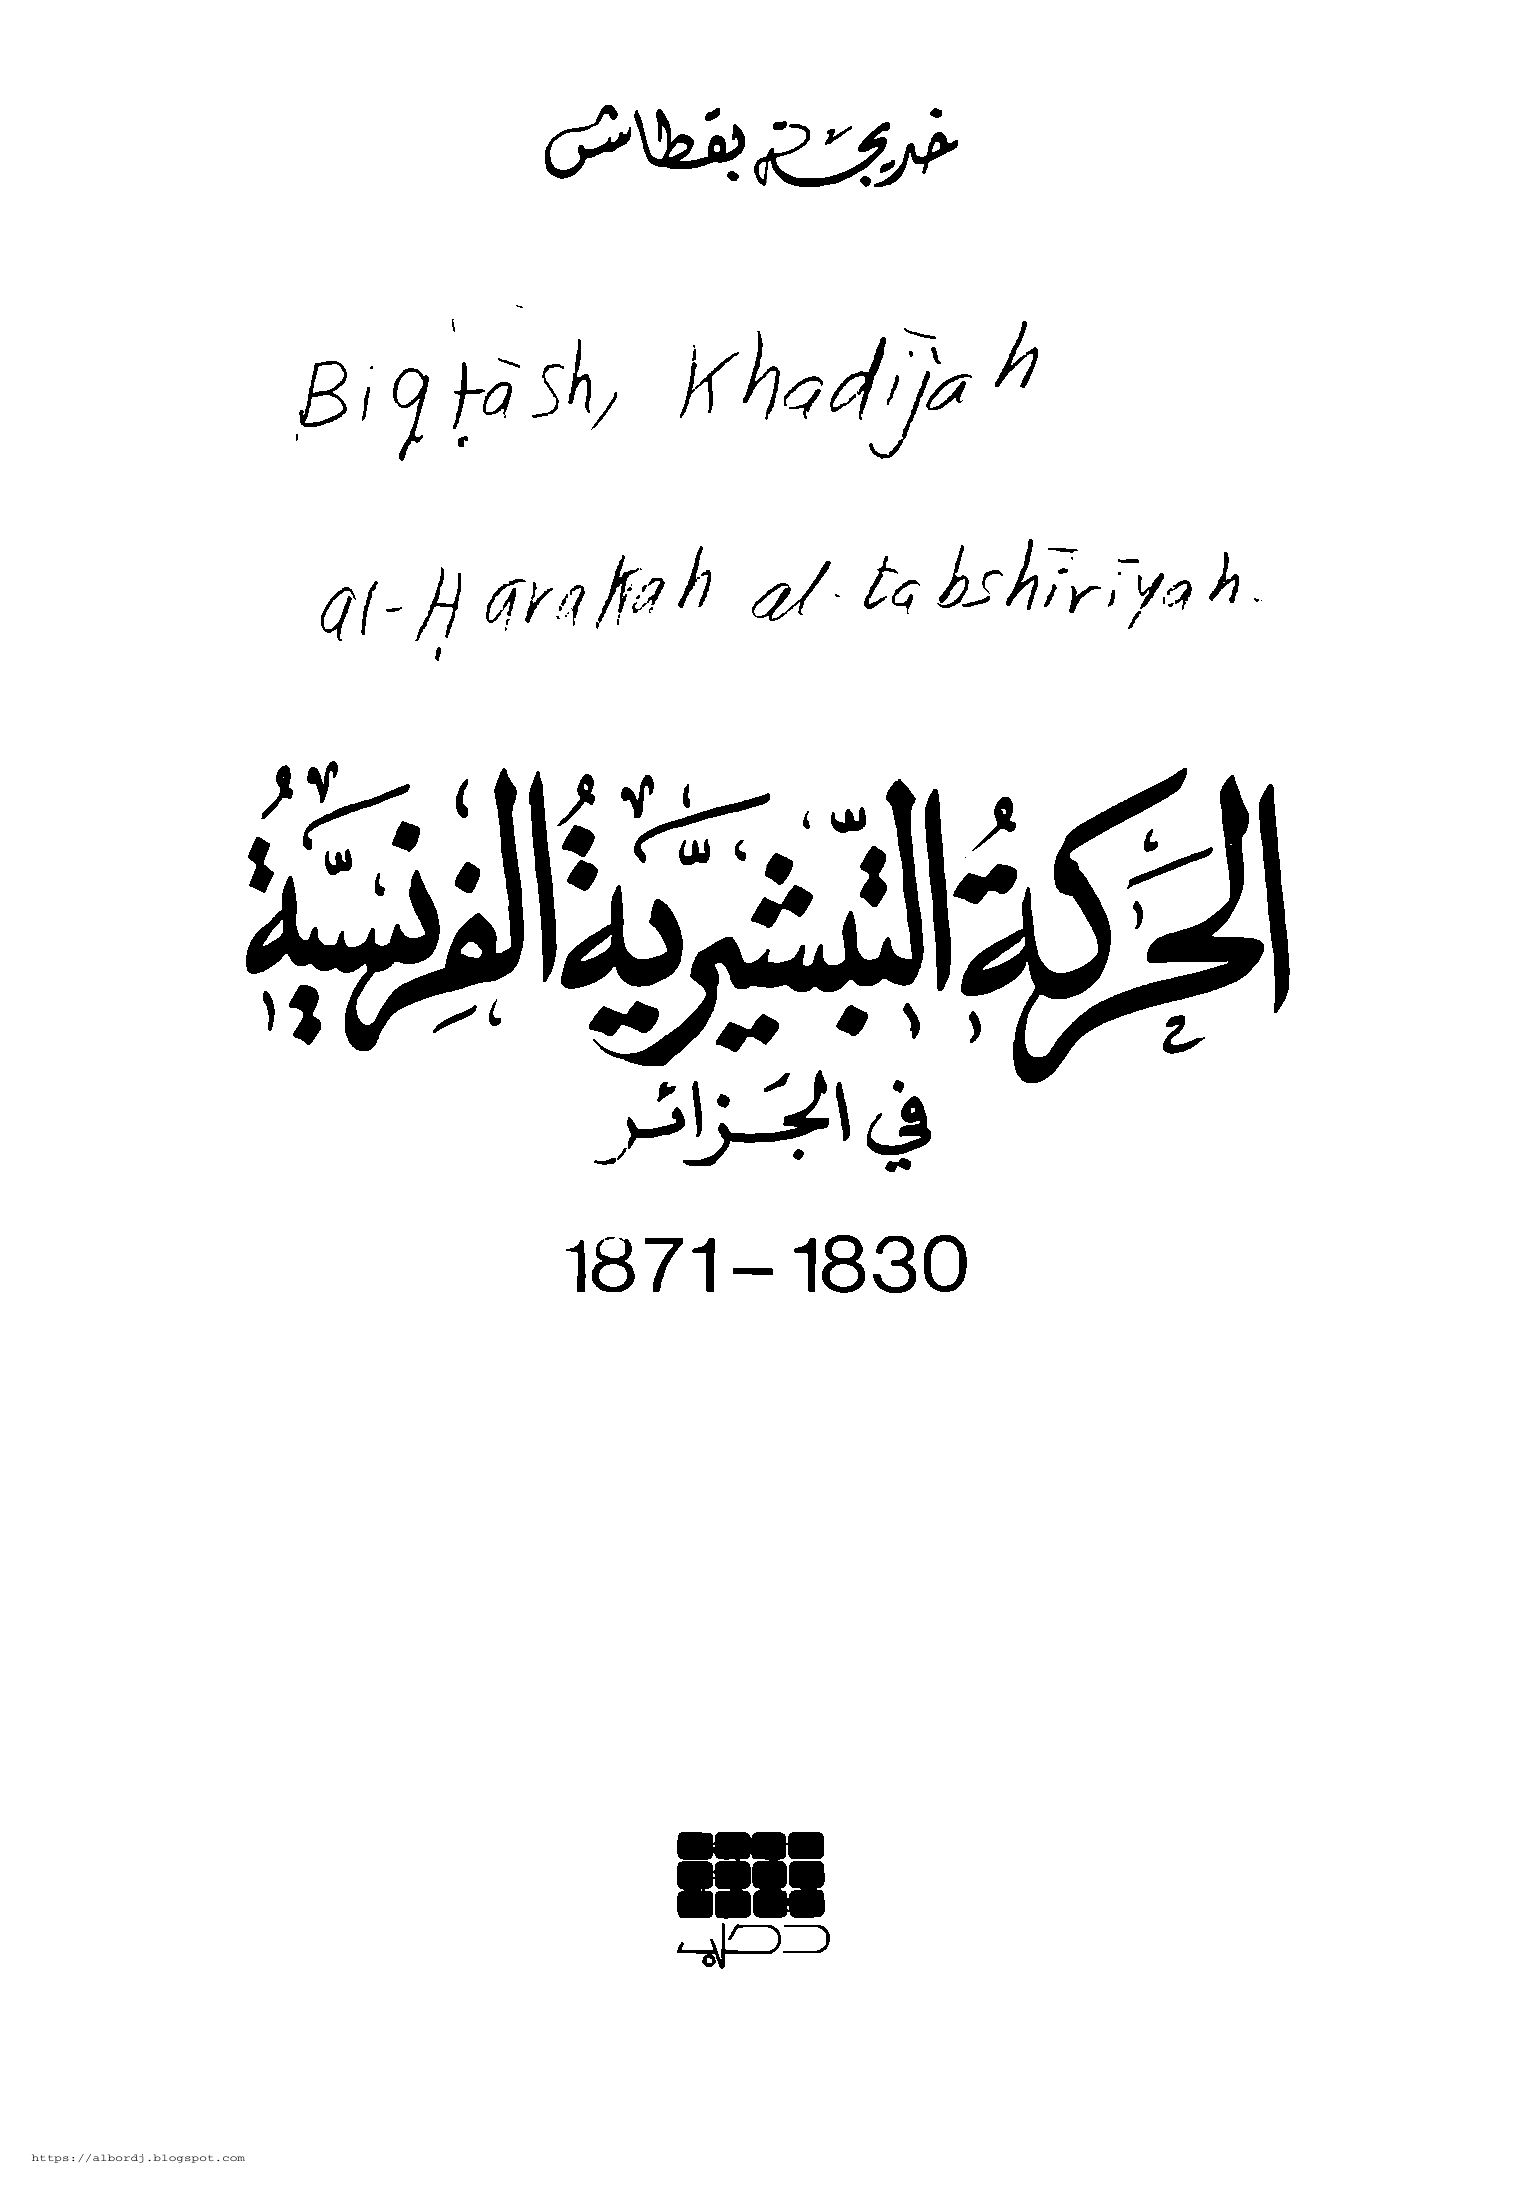 خديجة بقطاش
Biqṭāsh, Khadījah
al-Ḥarakah al-tabshīrīyah.
الحركةُ التّبشيريَّةُ الفرِنسيَّةُ
في الجَزائر
1871 – 1830
دحلب
https://albordj.blogspot.com